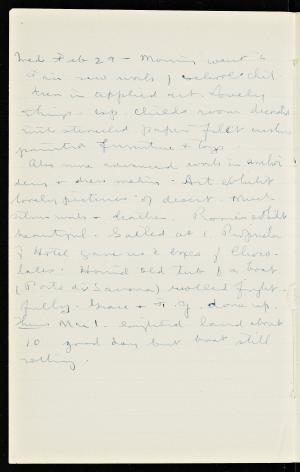 Wed Feb 29 - Morning went to
Fair saw work of school chil
dren in applied art. Lovely
things - esp. childs room decorated
with stenciled paper filet curtains
painted furniture & toys.
Also more advanced work in embroi
dery & dress making - Art exhibit
lovely pictures of desert. Much
silver work & leather.
beautiful. Sailed at 1. Proprietor
of Hotel gave us 2 boxes of Choco-
lates. Horrid old tub of a boat
(Porto di Savona) rolled fright
fully. Grace & F. J. done up.
Thurs Mar 1. sighted land about
10 good day but boat still
rolling.